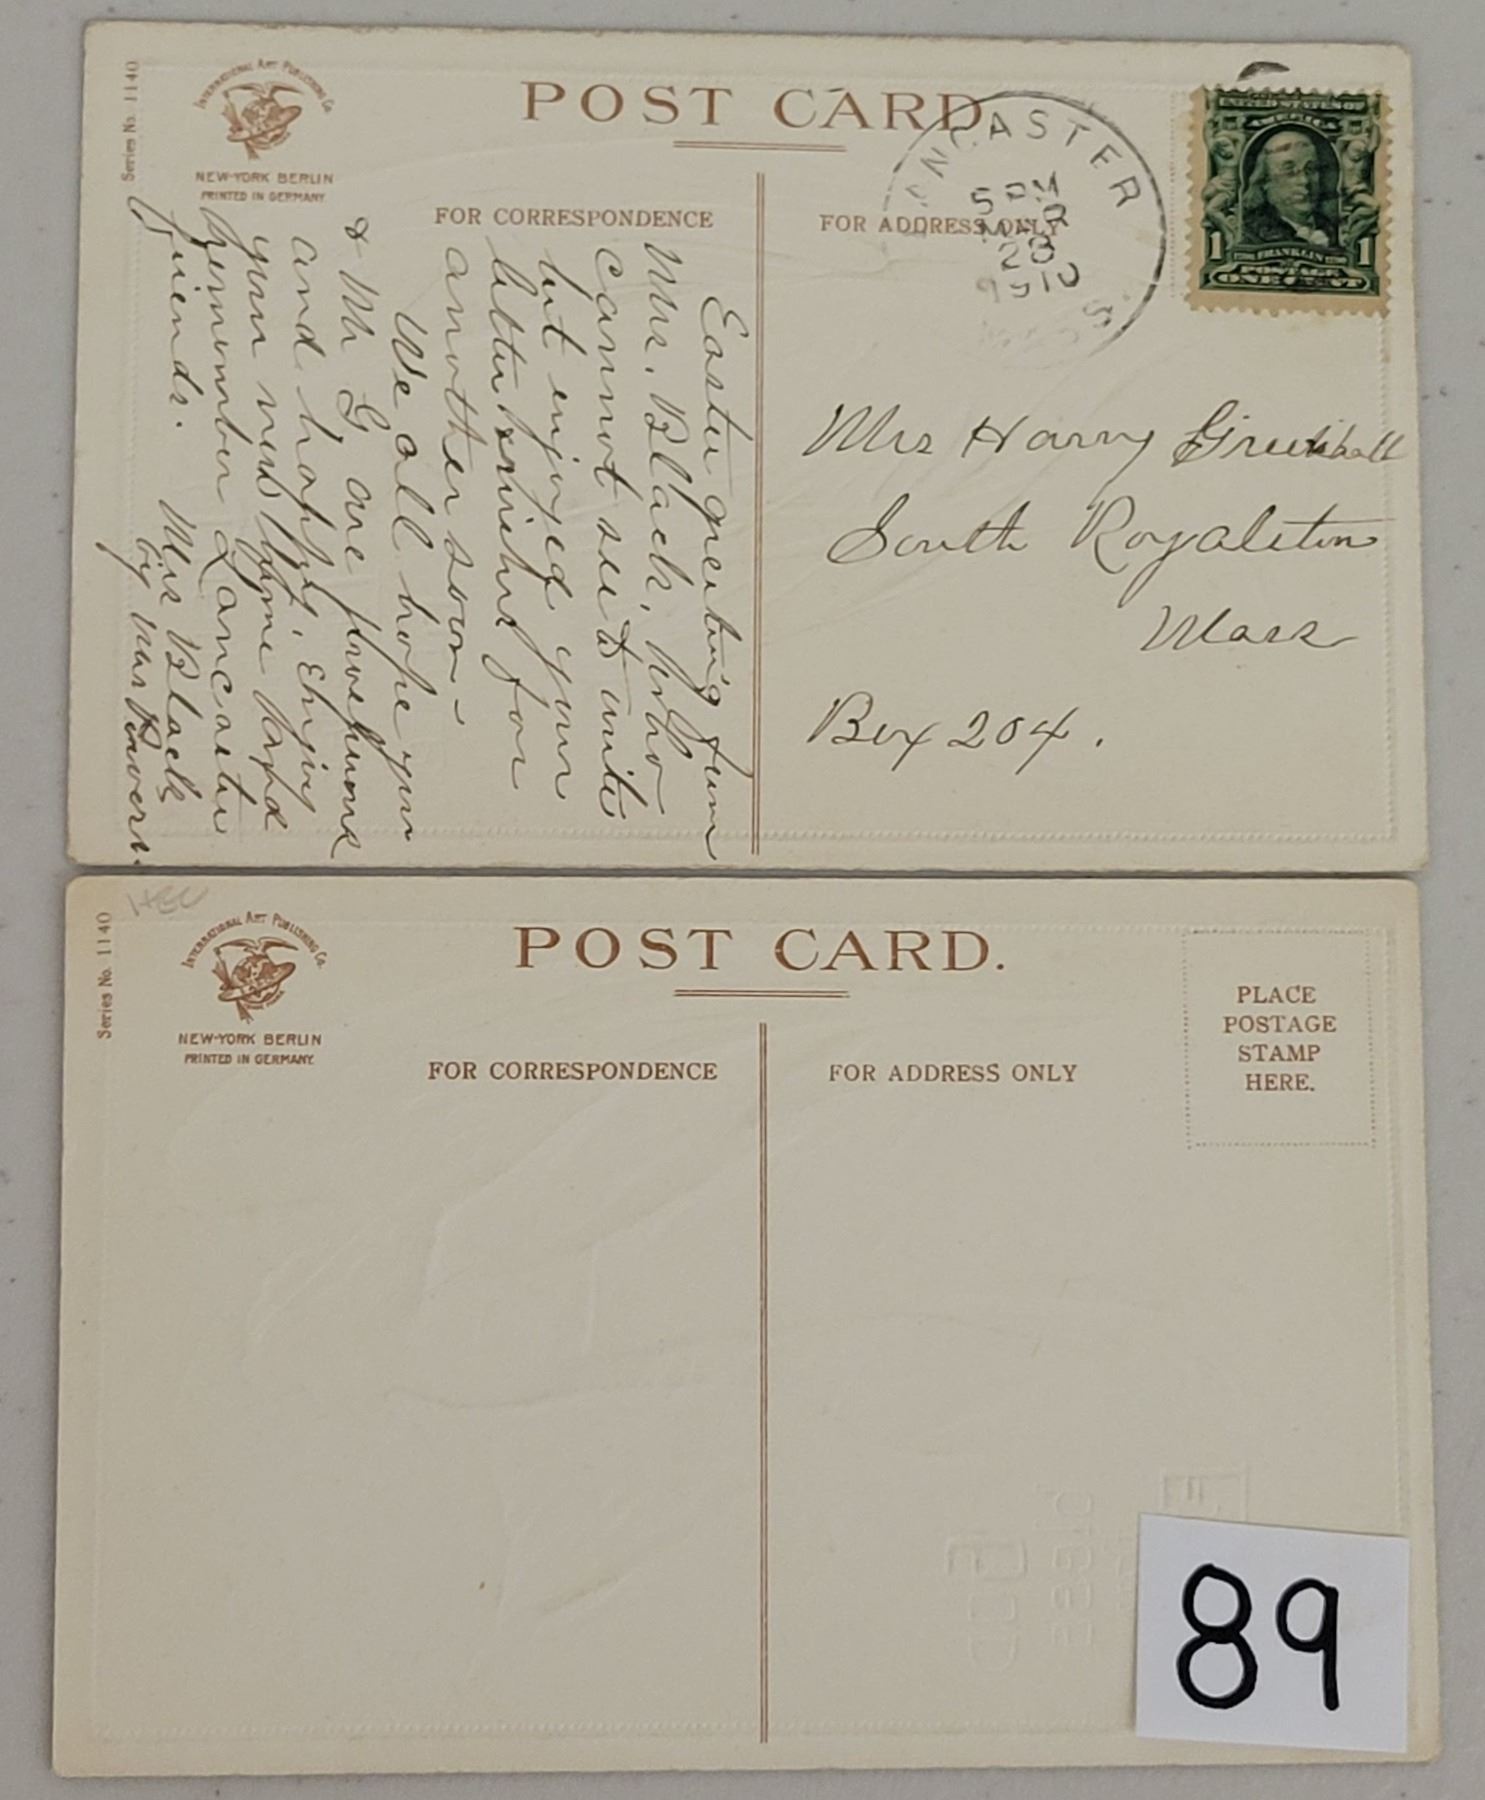 Series No. 1140
INTERNATIONAL ART PUBLISHING Co.
NEW-YORK BERLIN
PRINTED IN GERMANY.
POST CARD
FOR CORRESPONDENCE
FOR ADDRESS ONLY
LANCASTER
5 PM
MAR
28
1910
MASS.
UNITED STATES OF
AMERICA
1 FRANKLIN 1
POSTAGE
ONE CENT
Easter greeting from
Mrs. Black, who
cannot see to write
but enjoyed your
letter & wishes for
another soon -
We all hope you
& Mr G are prosperous
and happy. Enjoy
your new home and
remember Lancaster
friends.
Mrs Black
by Mrs
Mrs Harry Greenhall
South Royalston
Mass
Box 204.
HEC
Series No. 1140
INTERNATIONAL ART PUBLISHING Co.
NEW-YORK BERLIN
PRINTED IN GERMANY.
POST CARD.
FOR CORRESPONDENCE
FOR ADDRESS ONLY
PLACE
POSTAGE
STAMP
HERE.
89